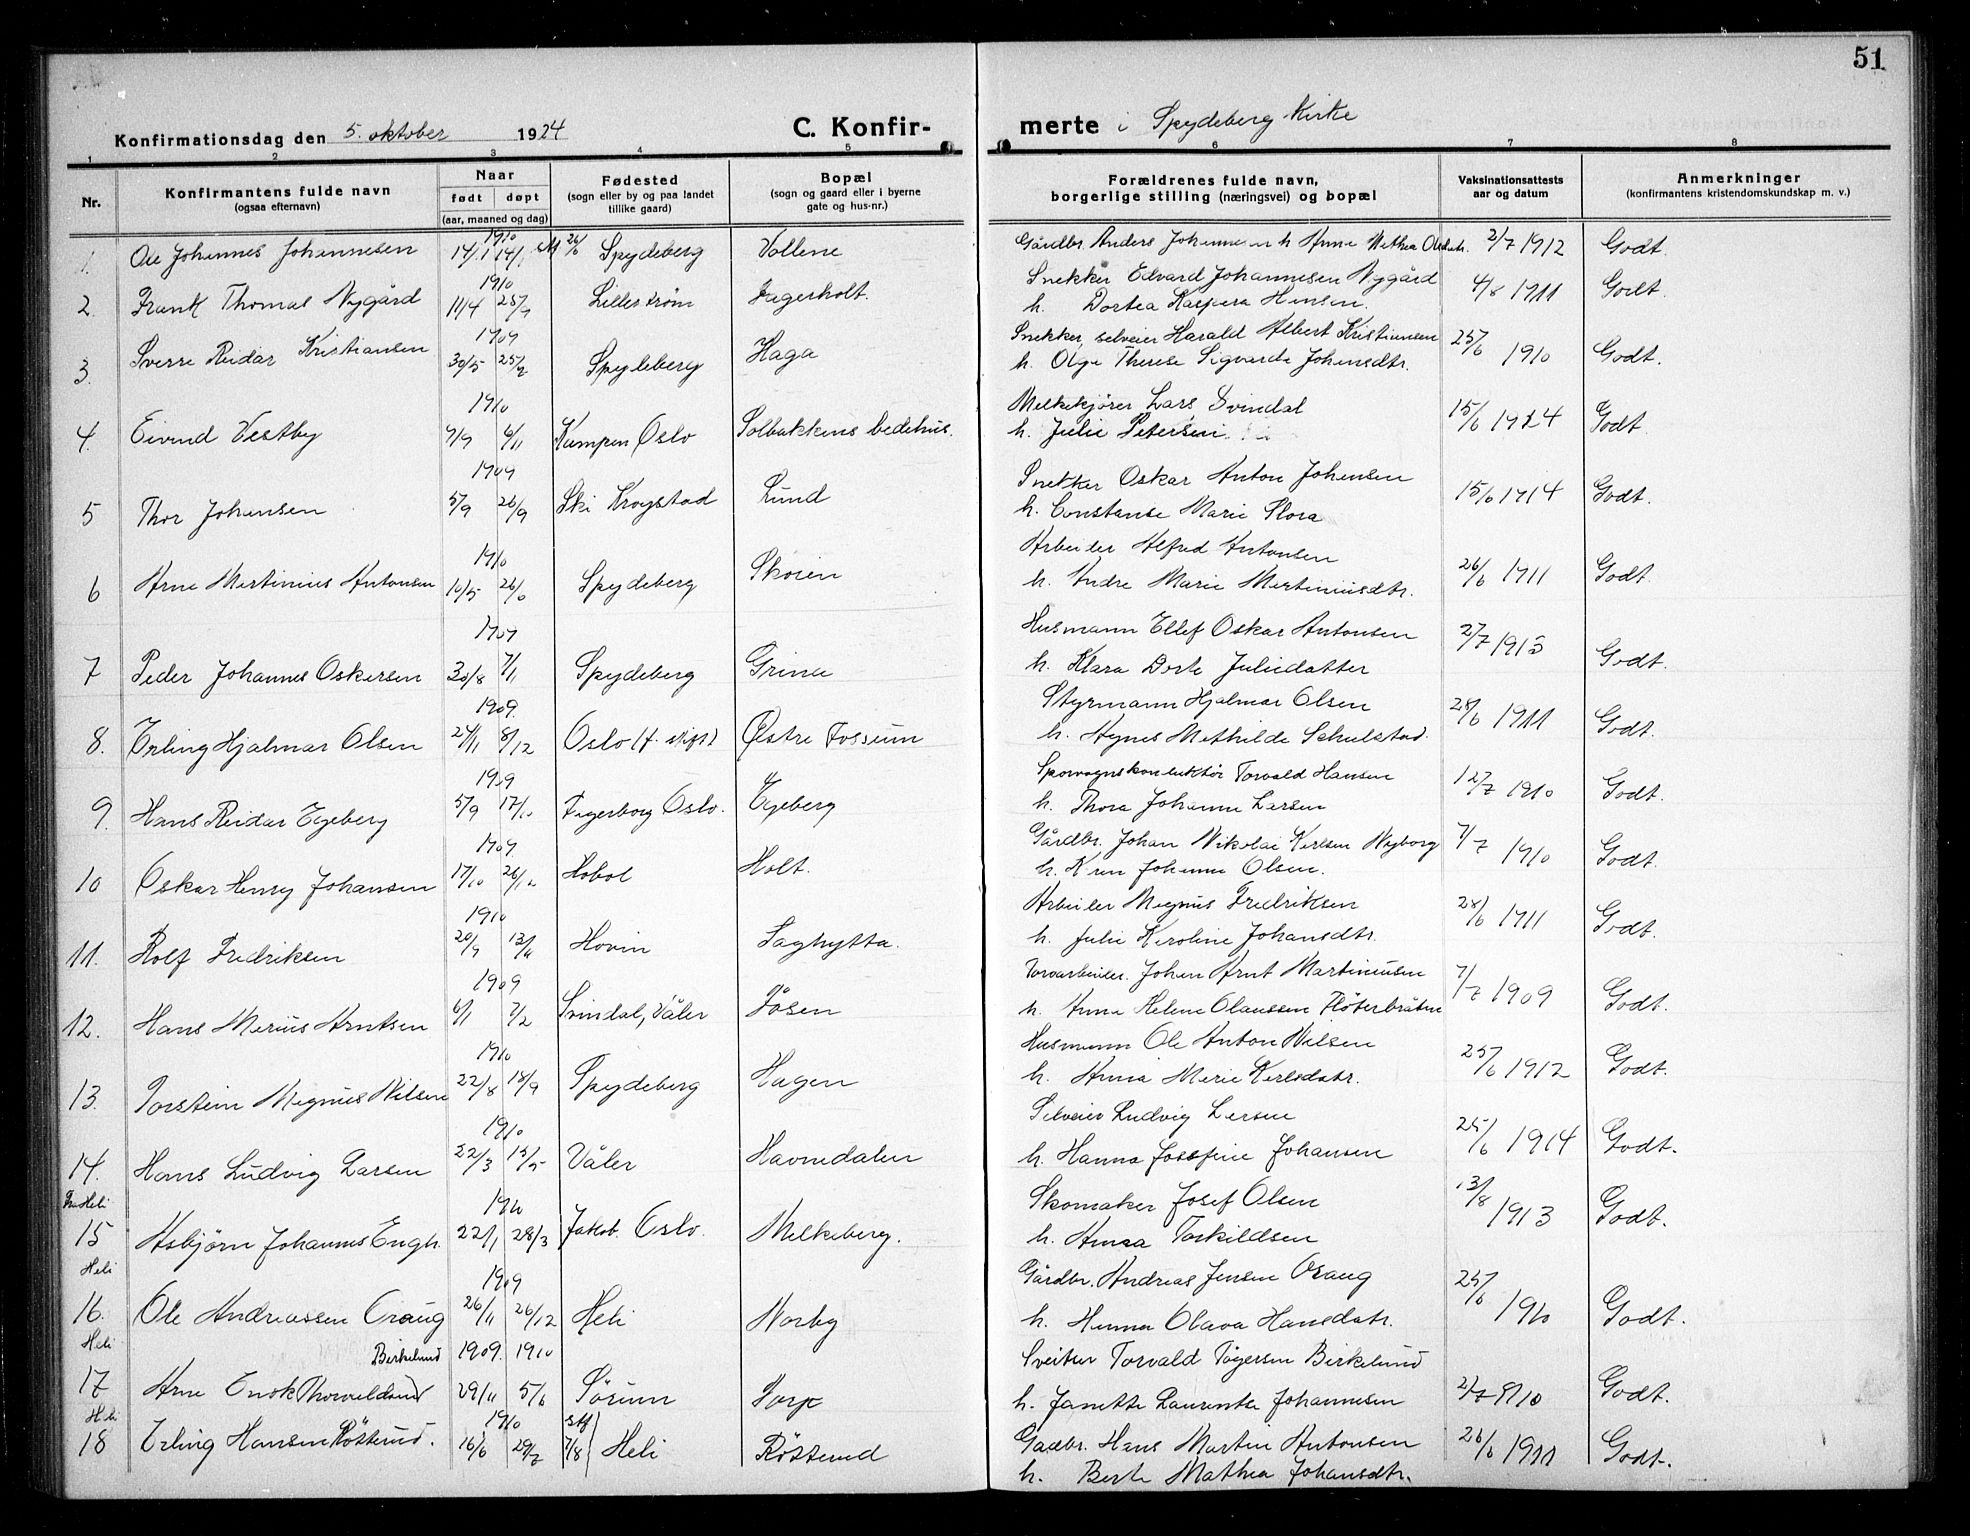 51
Konfirmationsdag den 5. oktober 1924 C. Konfir-
merte i Spydeberg Kirke
1 2 3 4 5 6 7 8
Nr. Konfirmantens fulde navn (ogsaa efternavn) Naar født døpt (aar, maaned og dag) Fødested (sogn eller by og paa landet tillike gaard) Bopæl (sogn og gaard eller i byerne gate og hus-nr.)
Forældrenes fulde navn, borgerlige stilling (næringsvei) og bopæl Vaksinationsattests aar og datum Anmerkninger (konfirmantens kristendomskundskap m. v.)
1910
1. Ole Johannes Johannesen 14/1 Spydeberg Vollene Gårdbr. Anders h. Anne Mathea 2/7 1912 Godt.
1910 Snekker Edvard Johannesen Nygård
2. Frank Thomas Nygård 11/4 25/7 Lillestrøm Jagerholt. h. Dortea Kaspara Hansen 4/8 1911 Godt.
1909 Snekker, selveier Harald Albert Kristiansen
3. Sverre Reidar Kristiansen 30/5 25/7 Spydeberg Haga h. Olga Therese Sigvarda Johansdtr. 25/6 1910 Godt.
1910 Melkekjører Lars Svindal
4. Eivind Vestby 9/9 6/11 Kampen Oslo Solbakkens bedehus. h. Julie Petersen 15/6 1924 Godt.
1909 Snekker Oskar Anton Johansen
5 Thor Johansen 5/9 26/9 Ski Krogstad Lund h. Constanse Marie Flora 15/6 1914 Godt.
1910 Arbeider Alfred Antonsen
6 Arne Martinius Antonsen 10/5 26/6 Spydeberg Skøien h. Andre Marie Martiniusdtr. 26/6 1911 Godt.
1909 Husmann Ellef Oskar Antonsen
7 Peder Johannes Oskarsen 30/8 7/11 Spydeberg Grina h. Klara Dorte Juliedatter 2/7 1913 Godt.
1909. Styrmann Hjalmar Olsen
8. Erling Hjalmar Olsen 21/11 8/12 Oslo Østre Fossum h. Agnes Mathilde Schulstad. 28/6 1911 Godt.
1909 Sporvognskonduktør Torvald Hansen
9. Hans Reidar Egeberg 5/9 17/10 Fagerborg Oslo. Egeberg h. Thora Johanne Larsen 12/7 1910 Godt.
1909 Gårdbr. Johan Nikolai Karlsen Nyborg
10 Oskar Henry Johansen 17/10 26/12 Hobøl Holt. h. Johanne Olsen. 7/7 1910 Godt.
1910 Arbeider Magnus Fredriksen
11. Rolf Fredriksen 20/9 13/11 Hovin Saghytta. h. Julie Karoline Johansdtr. 28/6 1911 Godt.
1909 Johan Arnt Martiniusen
12. Hans Marius Arntsen 6/1 7/2 Svindal, Våler Åsen h. Anna Helene Olaussen Fløterbråten 7/7 1909 Godt.
1910 Husmann Ole Anton Nilsen
13. Torstein Magnus Nilsen 22/8 18/9 Spydeberg Hagen h. Anna Marie Karlsdatr. 25/6 1912 Godt.
1910 Selveier Ludvig Larsen
14. Hans Ludvig Larsen 22/3 15/5 Våler Havnedalen h. Hanna Josefine Johansen 25/6 1914 Godt.
Fra Heli 1910 Skomaker Josef Olsen
15 Asbjörn Johannes Engh. 22/1 28/3 Jakob. Oslo. Melkeberg. h. Anna Torkildsen 13/8 1913 Godt.
Heli 1909 Gårdbr. Andreas Jensen Oraug
16. Ole Andreassen Oraug 26/11 26/12 Heli Norby h. Hanna Olava Hansdatr. 25/6 1910 Godt.
Heli Birkelund 1909. 1910 Sveitser Torvald Tøgersen Birkelund
17 Arne Enok Thorvaldsen 29/11 5/6 Sørum Torp h. Janette Laurentse Johannesen 2/7 1910 Godt.
Heli 1910
18 Erling Hansen Røsterud. 16/6 29/7 stf 7/8 Heli Røsterud Gårdbr. Hans Martin Antonsen 26/6 1911 Godt.
h. Berte Mathea Johansdtr.